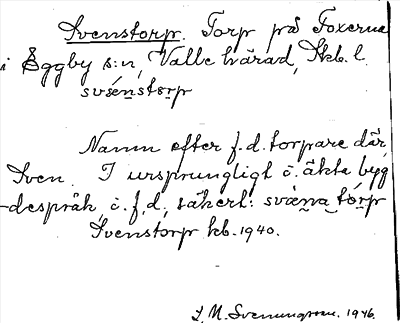 Svenstorp. Torp på Foxerna
i Eggby s:n, Valle härad, Skb. l.
svénstorp
Namn efter f.d. torpare där,
Sven. I ursprungligt o. äkta byg
-despråk, o. f.d., säkert: svæ̀na tórp
Svenstorp kb. 1940.
I. M. Svenungsson. 1946.